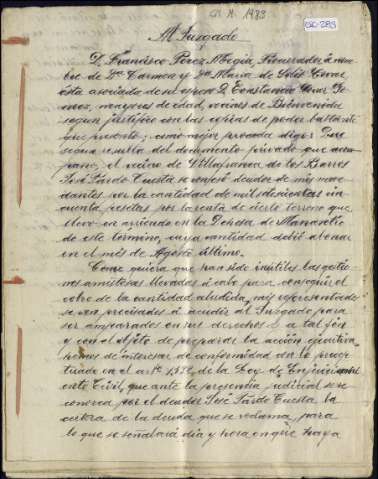 CM M. 1983
GC-283
Al Juzgado
D. Francisco Perez Megia, Procurador á nom-
bre de Dª Carmen y Dª Maria de Solis
ésta asociada de su esposo D. Constancio
mayores de edad, vecinos de Bienvenida
segun justifico con las copias de poder bastante
que presento; como mejor proceda digo: Que
segun resulta del documento privado que acom-
paño, el vecino de Villafranca de los Barros
José Pardo Cuesta se confesó deudor de mis man-
dantes por la cantidad de mil doscientas cin-
cuenta pesetas por la renta de cierto terreno que
llevó en arriendo en la Dehesa de
de este término, cuya cantidad debió abonar
en el més de Agosto último.
Como quiera que han sido inútiles las gestio-
nes amistosas llevadas á cabo para conseguir el
cobro de la cantidad aludida, mis representados
se ven precisados á acudir al Juzgado para
ser amparados en sus derechos á tal fin
y con el objeto de preparar la acción ejecutiva,
hemos de interesar de conformidad con lo precep-
tuado en el artº de la Ley de Enjuiciami-
ento Civil, que ante la presencia judicial se re-
conozca por el deudor José Pardo Cuesta la
certeza de la deuda que se reclama para
lo que se señalará dia y hora en que haya